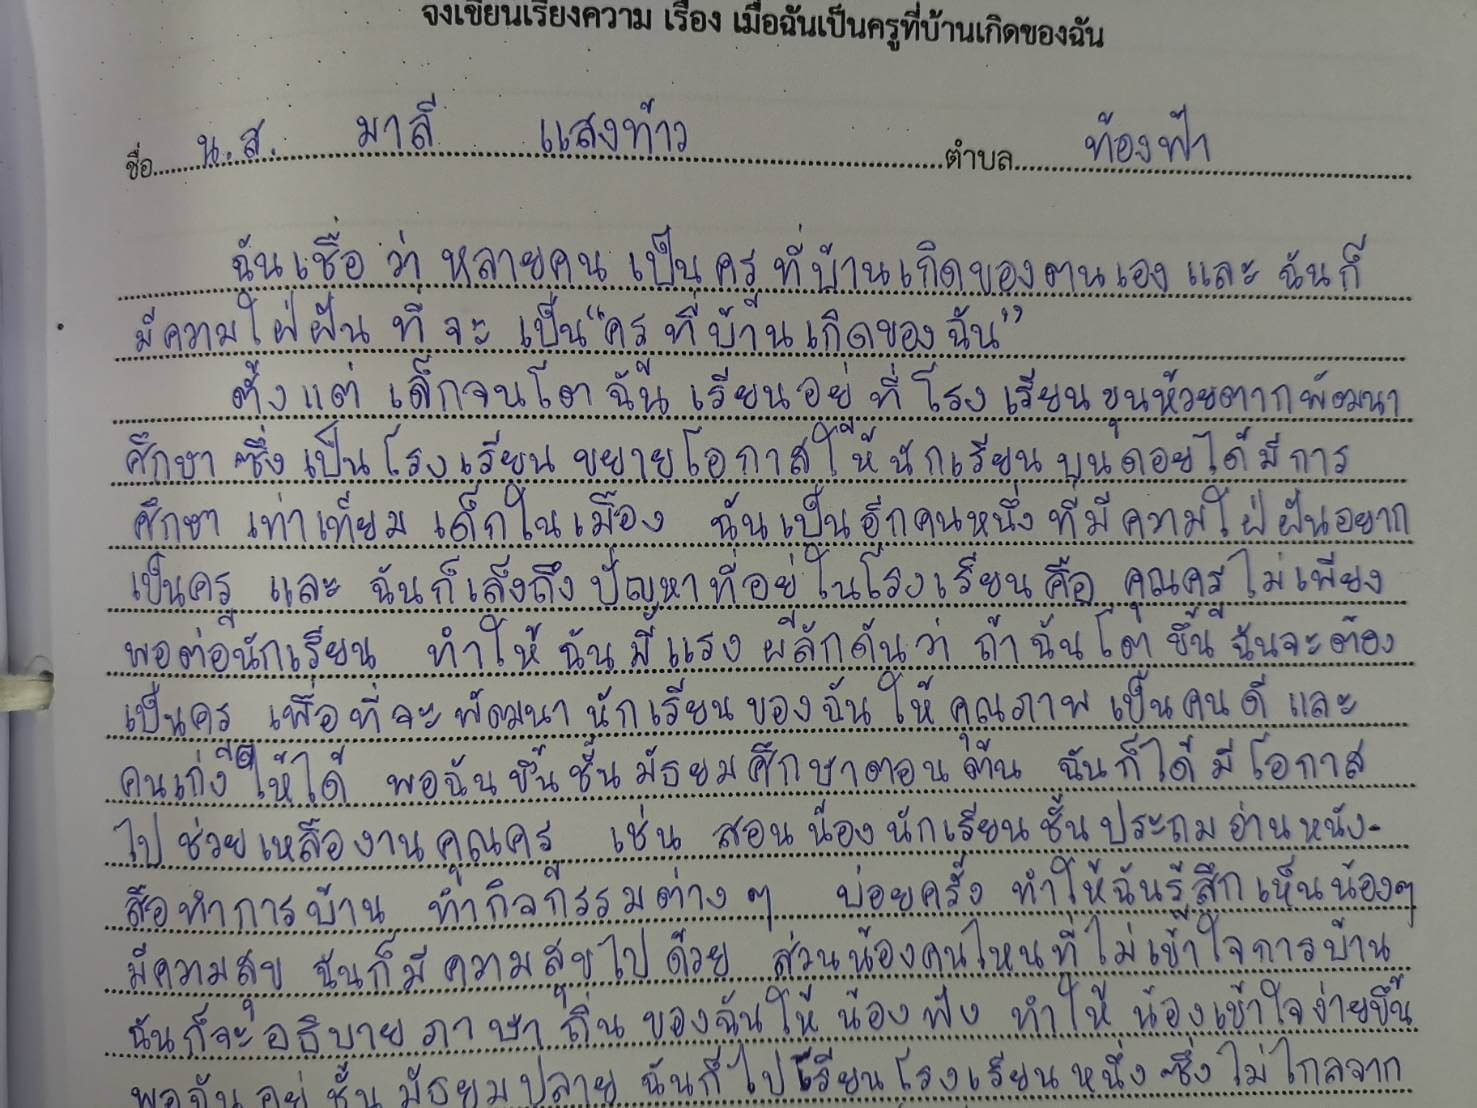 จงเขียนเรียงความ เรื่อง เมื่อฉันเป็นครูที่บ้านเกิดของฉัน
ชื่อ น.ส. มาลี แสงท้าว ตำบล ท้องฟ้า
ฉันเชื่อ ว่า หลายคน เป็นครูที่บ้านเกิดของตนเอง และ ฉันก็
มีความใฝ่ฝัน ที่ จะ เป็น "ครู ที่บ้านเกิดของฉัน"
ตั้งแต่ เด็กจนโต ฉัน เรียนอยู่ ที่ โรงเรียนขุนห้วยตากพัฒนา
ศึกษา ซึ่ง เป็นโรงเรียน ขยายโอกาสให้นักเรียน บนดอยได้มีการ
ศึกษา เท่าเทียม เด็กในเมือง ฉันเป็นอีกคนหนึ่ง ที่มีความใฝ่ฝันอยาก
เป็นครู และ ฉันก็เล็งถึง ปัญหาที่อยู่ในโรงเรียน คือ คุณครูไม่เพียง
พอต่อนักเรียน ทำให้ ฉันมีแรง ผลักดันว่า ถ้าฉันโต ขึ้น ฉันจะต้อง
เป็นครู เพื่อที่จะพัฒนา นักเรียนของฉันให้ คุณภาพ เป็นคนดี และ
คนเก่ง ให้ได้ พอฉันขึ้นชั้นมัธยมศึกษาตอนต้น ฉันก็ได้มีโอกาส
ไปช่วยเหลืองานคุณครู เช่น สอนน้องนักเรียนชั้นประถมอ่านหนัง-
สือทำการบ้าน ทำกิจกรรมต่างๆ บ่อยครั้ง ทำให้ฉันรู้สึกเห็นน้องๆ
มีความสุข ฉันก็มีความสุขไปด้วย ส่วนน้องคนไหนที่ไม่เข้าใจการบ้าน
ฉันก็จะอธิบายภาษาถิ่นของฉันให้น้องฟัง ทำให้ น้องเข้าใจง่ายขึ้น
พอฉันอยู่ชั้นมัธยมปลาย ฉันก็ไปเรียนโรงเรียนหนึ่ง ซึ่งไม่ไกลจาก